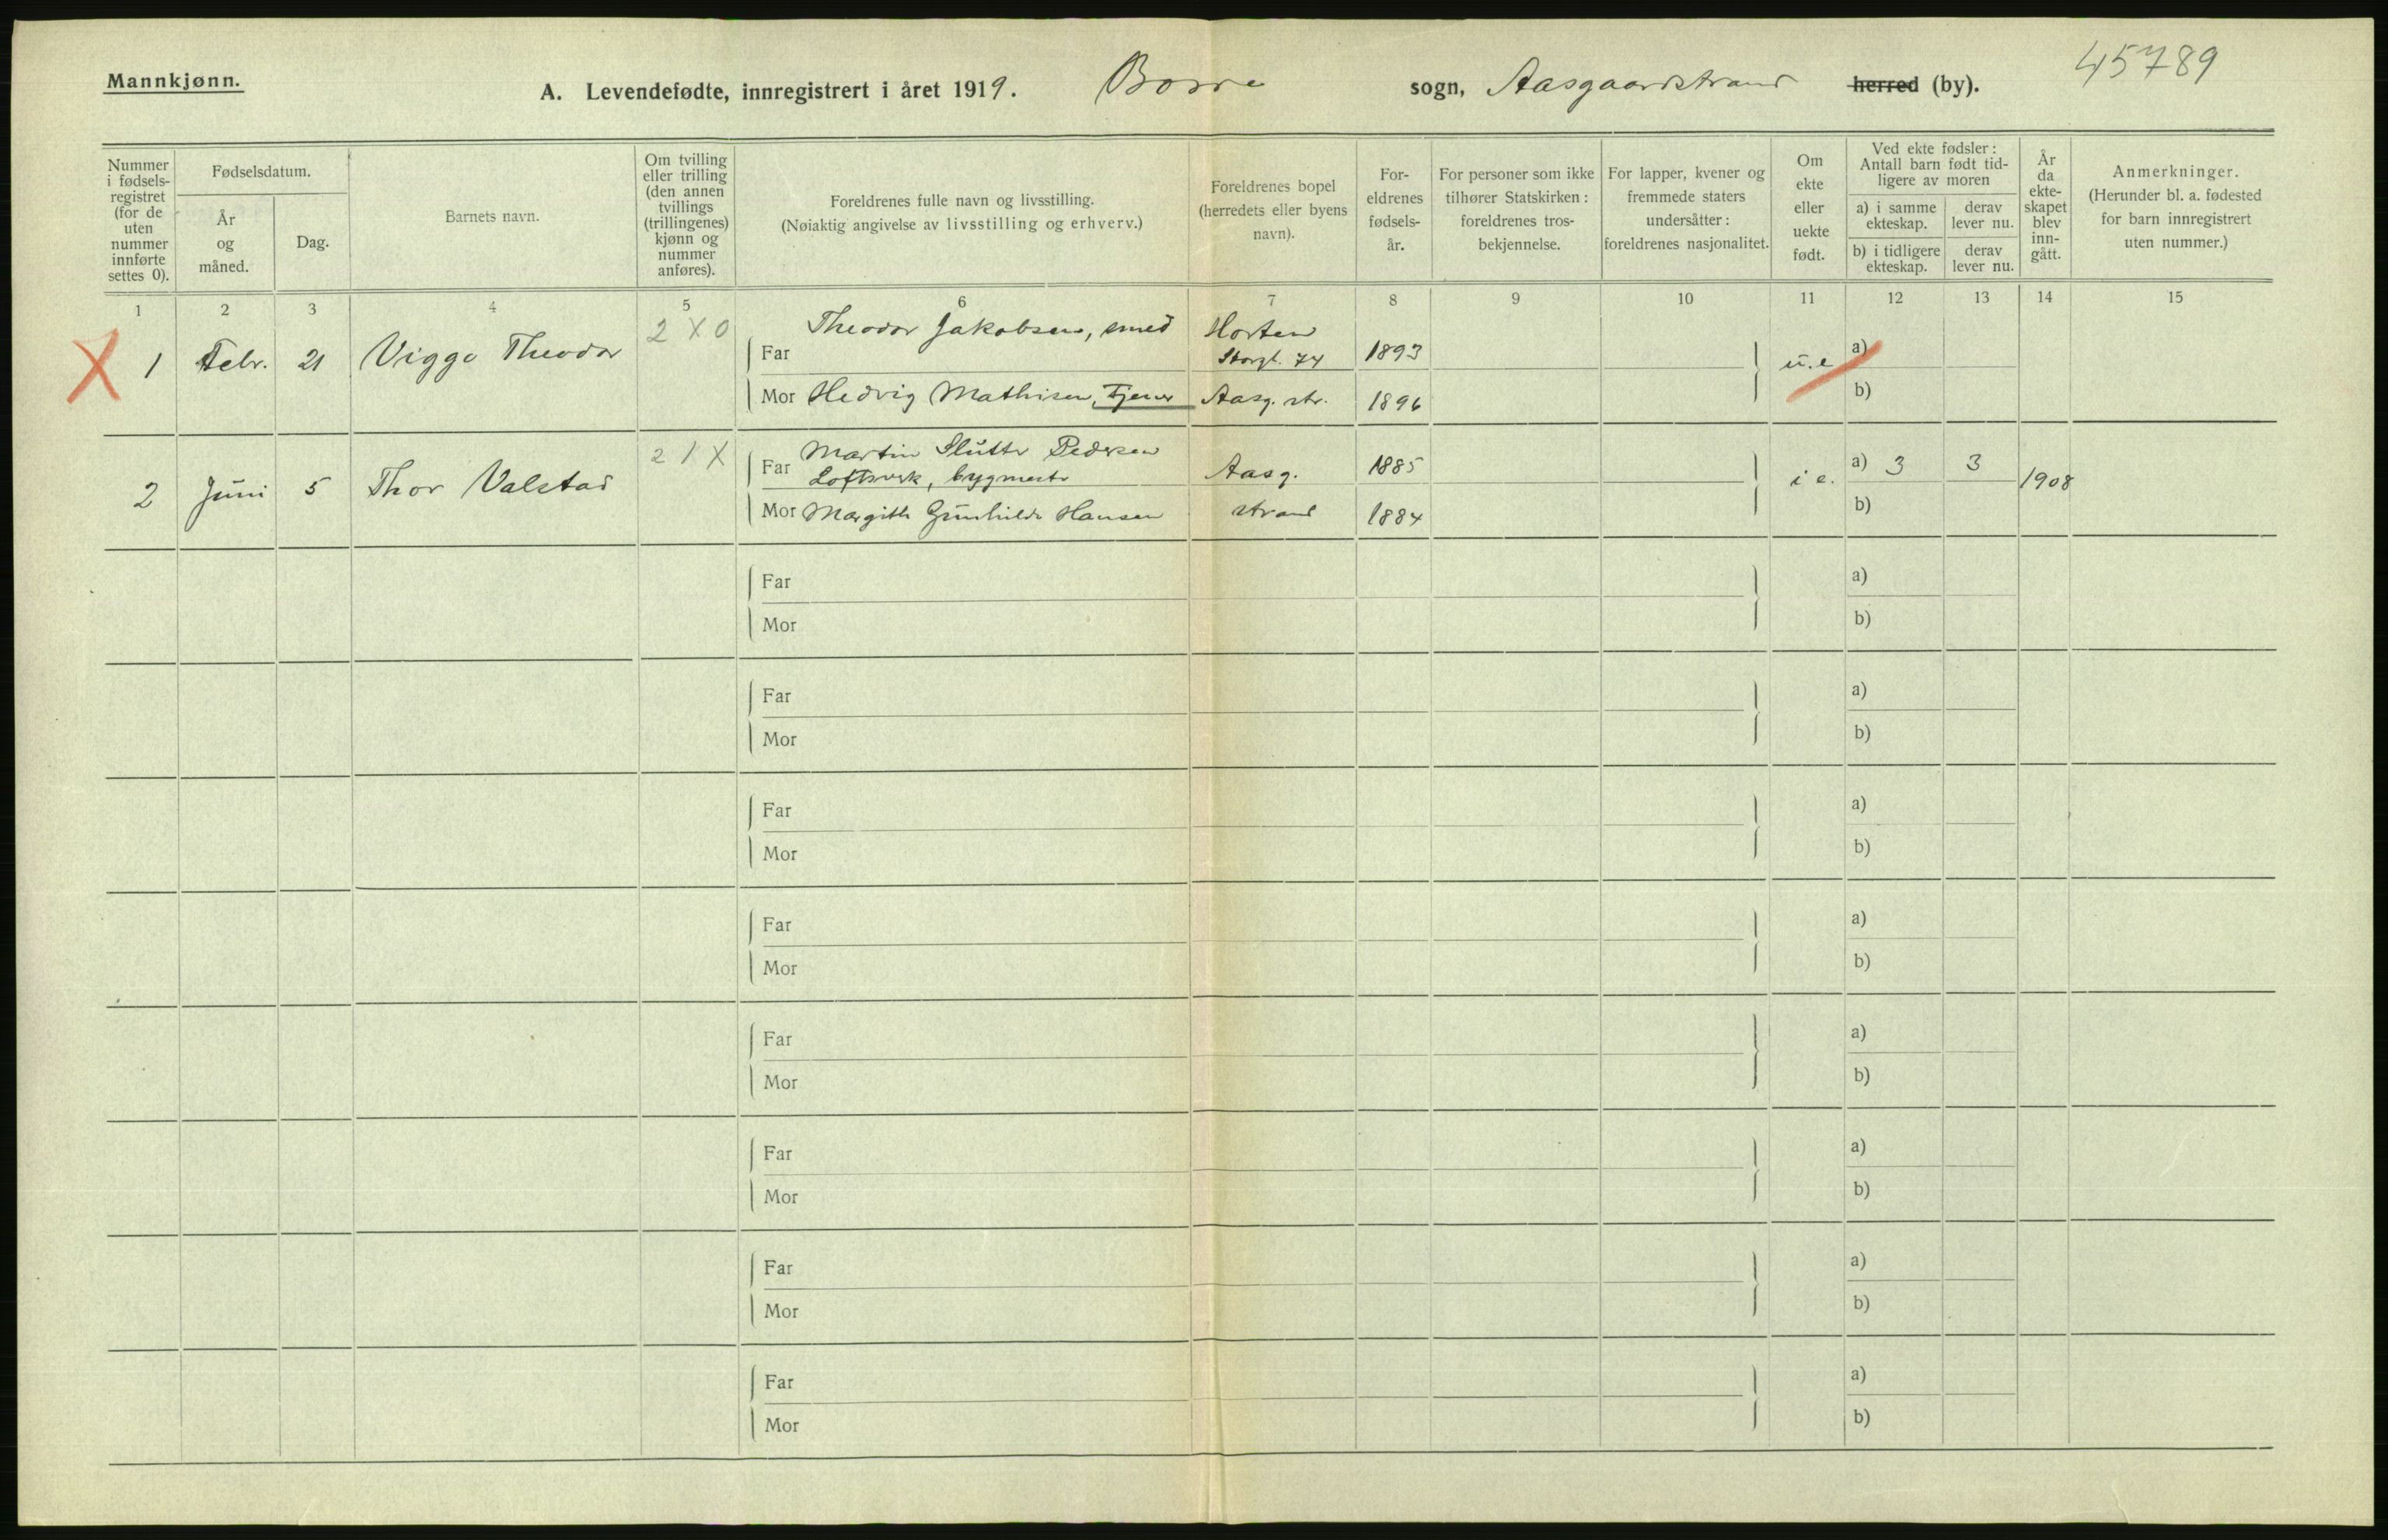 Mannkjønn.
A. Levendefødte, innregistrert i året 1919. Borre sogn, Aasgaardstrand herred (by).
45789
Nummer i fødsels-registret (for de uten nummer innførte settes 0).
Fødselsdatum.
År og måned.
Dag.
Barnets navn.
Om tvilling eller trilling (den annen tvillings (trillingenes) kjønn og nummer anføres).
Foreldrenes fulle navn og livsstilling.
(Nøiaktig angivelse av livsstilling og erhverv.)
Foreldrenes bopel (herredets eller byens navn).
For-eldrenes fødsels-år.
For personer som ikke tilhører Statskirken: foreldrenes tros-bekjennelse.
For lapper, kvener og fremmede staters undersåtter: foreldrenes nasjonalitet.
Om ekte eller uekte født.
Ved ekte fødsler: Antall barn født tid-ligere av moren
a) i samme ekteskap.
derav lever nu.
b) i tidligere ekteskap.
derav lever nu.
År da ekte-skapet blev inn-gått.
Anmerkninger.
(Herunder bl. a. fødested for barn innregistrert uten nummer.)
1 2 3 4 5 6 7 8 9 10 11 12 13 14 15
X 1 Febr. 21 Viggo Theodor 2 X 0
Far Theodor Jakobsen, smed Horten Storgt. 74 1893 u.e a)
Mor Hedvig Mathisen, Tjener Aasg. str. 1896 b)
2 Juni 5 Thor Valstad 2 1 X
Far Martin Slutter Pedersen bygmestr Aasg. 1885 i e. a) 3 3 1908
Mor Margith Gunhilde Hansen strand 1884 b)
Far a)
Mor b)
Far a)
Mor b)
Far a)
Mor b)
Far a)
Mor b)
Far a)
Mor b)
Far a)
Mor b)
Far a)
Mor b)
Far a)
Mor b)